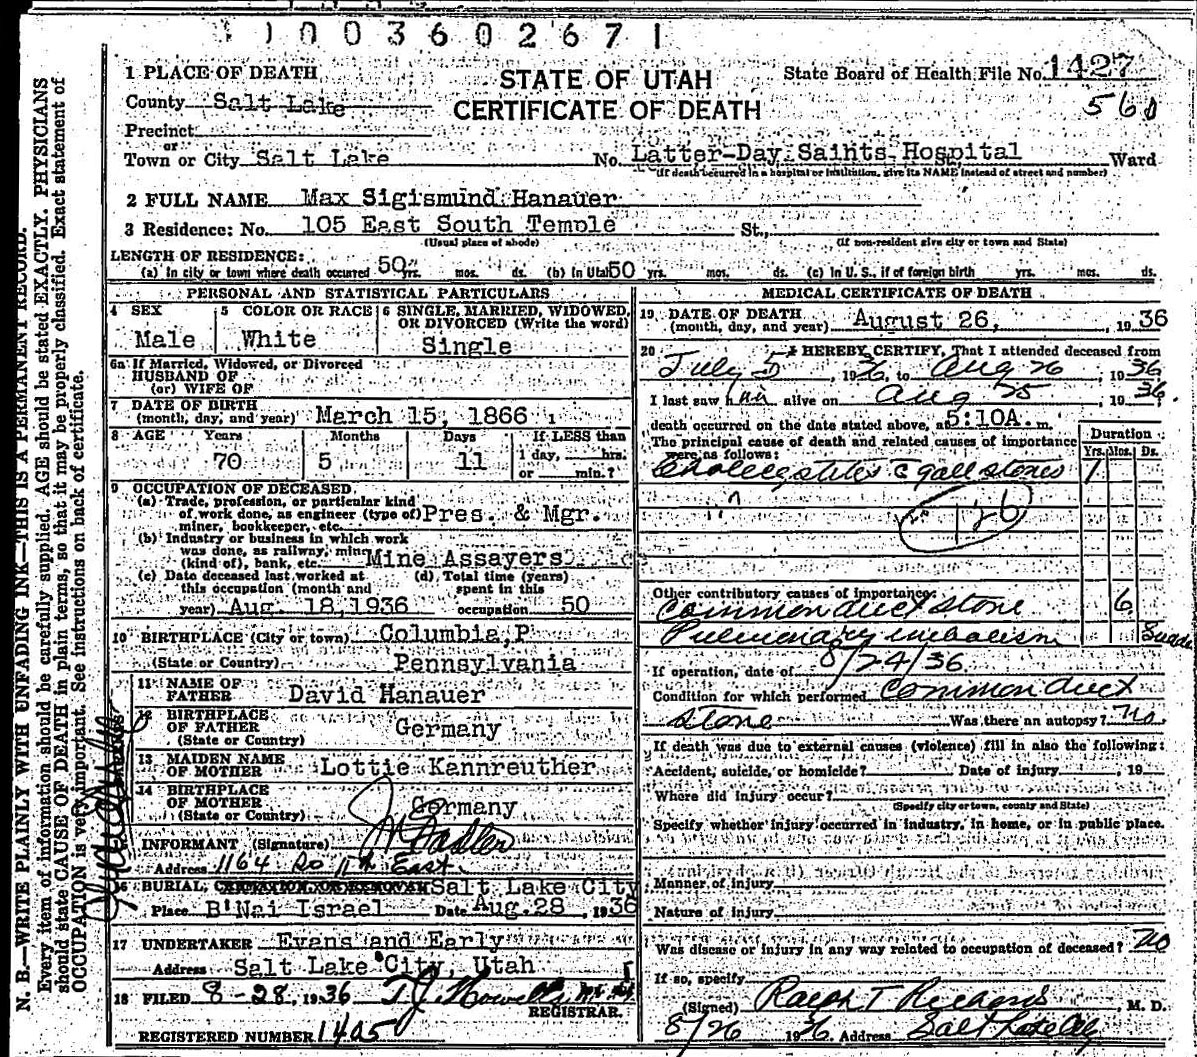 1003602671
1 PLACE OF DEATH
STATE OF UTAH
CERTIFICATE OF DEATH
State Board of Health File No. 1427
560
County Salt Lake
Precinct
or
Town or City Salt Lake No. Latter-Day Saints Hospital St., Ward
(If death occurred in a hospital or institution, give its NAME instead of street and number)
2 FULL NAME Max Sigismund Hanauer
3 Residence: No. 105 East South Temple St.,
(Usual place of abode) (If non-resident give city or town and State)
LENGTH OF RESIDENCE:
(a) In city or town where death occurred 50 yrs. mos. ds. (b) In Utah 50 yrs. mos. ds. (c) In U. S., if of foreign birth yrs. mos. ds.
PERSONAL AND STATISTICAL PARTICULARS
4 SEX Male
5 COLOR OR RACE White
6 SINGLE, MARRIED, WIDOWED, OR DIVORCED (Write the word) Single
6a If Married, Widowed, or Divorced
HUSBAND OF
(or) WIFE OF
7 DATE OF BIRTH
(month, day, and year) March 15, 1866
8 AGE Years Months Days If LESS than
70 5 11 1 day, hrs.
or min.?
9 OCCUPATION OF DECEASED
(a) Trade, profession, or particular kind
of work done, as engineer (type of)
miner, bookkeeper, etc. Pres. & Mgr.
(b) Industry or business in which work
was done, as railway, mine
(kind of), bank, etc. Mine Assayers
(c) Date deceased last worked at
this occupation (month and
year) Aug. 18, 1936
(d) Total time (years)
spent in this
occupation 50
10 BIRTHPLACE (City or town) Columbia, P
(State or Country) Pennsylvania
11 NAME OF
FATHER David Hanauer
12 BIRTHPLACE
OF FATHER Germany
(State or Country)
13 MAIDEN NAME
OF MOTHER Lottie Kannreuther
14 BIRTHPLACE
OF MOTHER Germany
(State or Country)
15
INFORMANT (Signature)
Address 1164 So 11th East
16 BURIAL, CREMATION OR REMOVAL Salt Lake City
Place B'Nai Israel Date Aug. 28, 1936
17 UNDERTAKER Evans and Early
Address Salt Lake City, Utah
18 FILED 8-28, 1936 T. J. Howells
REGISTRAR.
REGISTERED NUMBER 1405
MEDICAL CERTIFICATE OF DEATH
19 DATE OF DEATH
(month, day, and year) August 26, 1936
20 I HEREBY CERTIFY, That I attended deceased from
July 5, 1936, to Aug 26, 1936
I last saw him alive on Aug 25, 1936,
death occurred on the date stated above, at 5:10A. m.
The principal cause of death and related causes of importance
were as follows:
Duration
Yrs. Mos. Ds.
Cholecystites c gall stones 1
126
Other contributory causes of importance:
Common duct stone 6
Pulmonary embolism
If operation, date of 8/24/36
Condition for which performed Common duct
stone Was there an autopsy? no
If death was due to external causes (violence) fill in also the following:
Accident, suicide, or homicide? Date of injury , 19
Where did injury occur?
(Specify city or town, county and State)
Specify whether injury occurred in industry, in home, or in public place.
Manner of injury
Nature of injury
Was disease or injury in any way related to occupation of deceased? no
If so, specify
(Signed) Ralph T Richards M. D.
8/26 1936 Address Salt Lake City
N. B.—WRITE PLAINLY WITH UNFADING INK—THIS IS A PERMANENT RECORD.
Every item of information should be carefully supplied. AGE should be stated EXACTLY. PHYSICIANS
should state CAUSE OF DEATH in plain terms, so that it may be properly classified. Exact statement of
OCCUPATION is very important. See instructions on back of certificate.